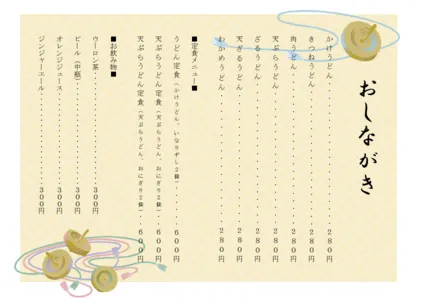 おしながき
かけうどん・・・・・・・・・・・・・・・・２８０円
きつねうどん・・・・・・・・・・・・・・・２８０円
肉うどん・・・・・・・・・・・・・・・・・２８０円
天ぷらうどん・・・・・・・・・・・・・・・２８０円
ざるうどん・・・・・・・・・・・・・・・・２８０円
天ざるうどん・・・・・・・・・・・・・・・２８０円
わかめうどん・・・・・・・・・・・・・・・２８０円
■定食メニュー■
うどん定食（かけうどん、いなりずし２個）・・・・６００円
天ぷらうどん定食（天ぷらうどん、おにぎり２個）・・６００円
天ぷらうどん定食（天ぷらうどん、おにぎり２個）・・６００円
■お飲み物■
ウーロン茶・・・・・・・・・・・・・・・３００円
ビール（中瓶）・・・・・・・・・・・・・３００円
オレンジジュース・・・・・・・・・・・・３００円
ジンジャーエール・・・・・・・・・・・・３００円